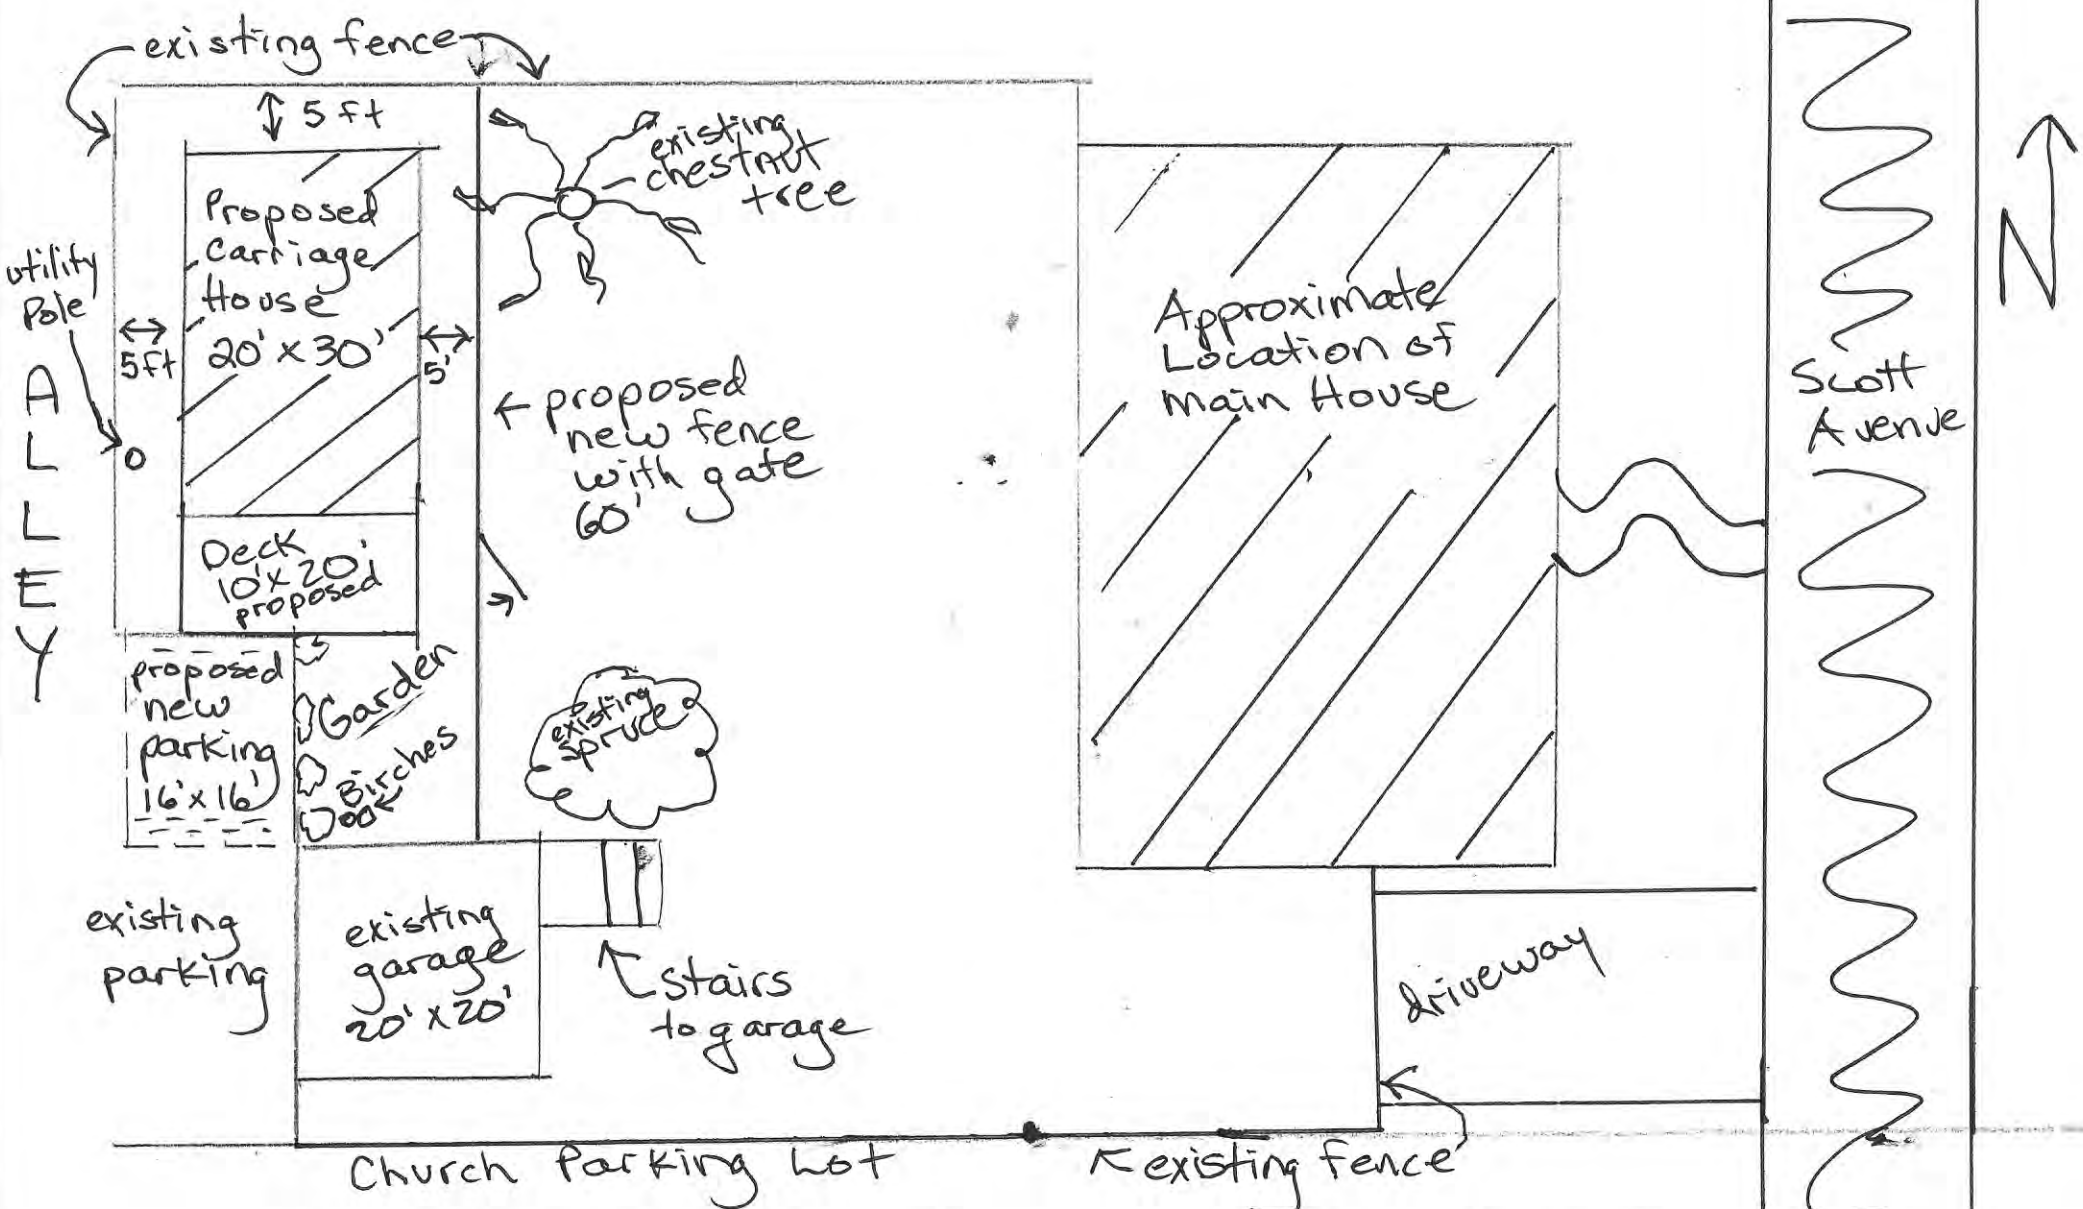 existing fence
5 ft
Proposed
Carriage
House
20' x 30'
utility
Pole
5ft
5'
ALLEY
existing
chestnut
tree
← proposed
new fence
with gate
60'
Deck
10' x 20'
proposed
proposed
new
parking
16' x 16'
Garden
Birches
existing
spruce
existing
parking
existing
garage
20' x 20'
stairs
to garage
Approximate
Location of
main House
driveway
Scott
Avenue
N
Church Parking Lot
existing fence